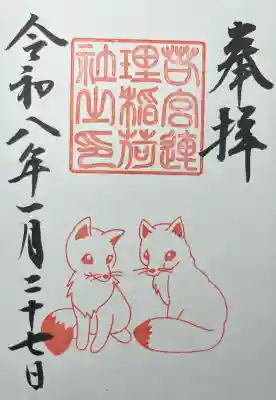 奉拝
若宮連
理稲荷
社之印
令和八年一月二十七日